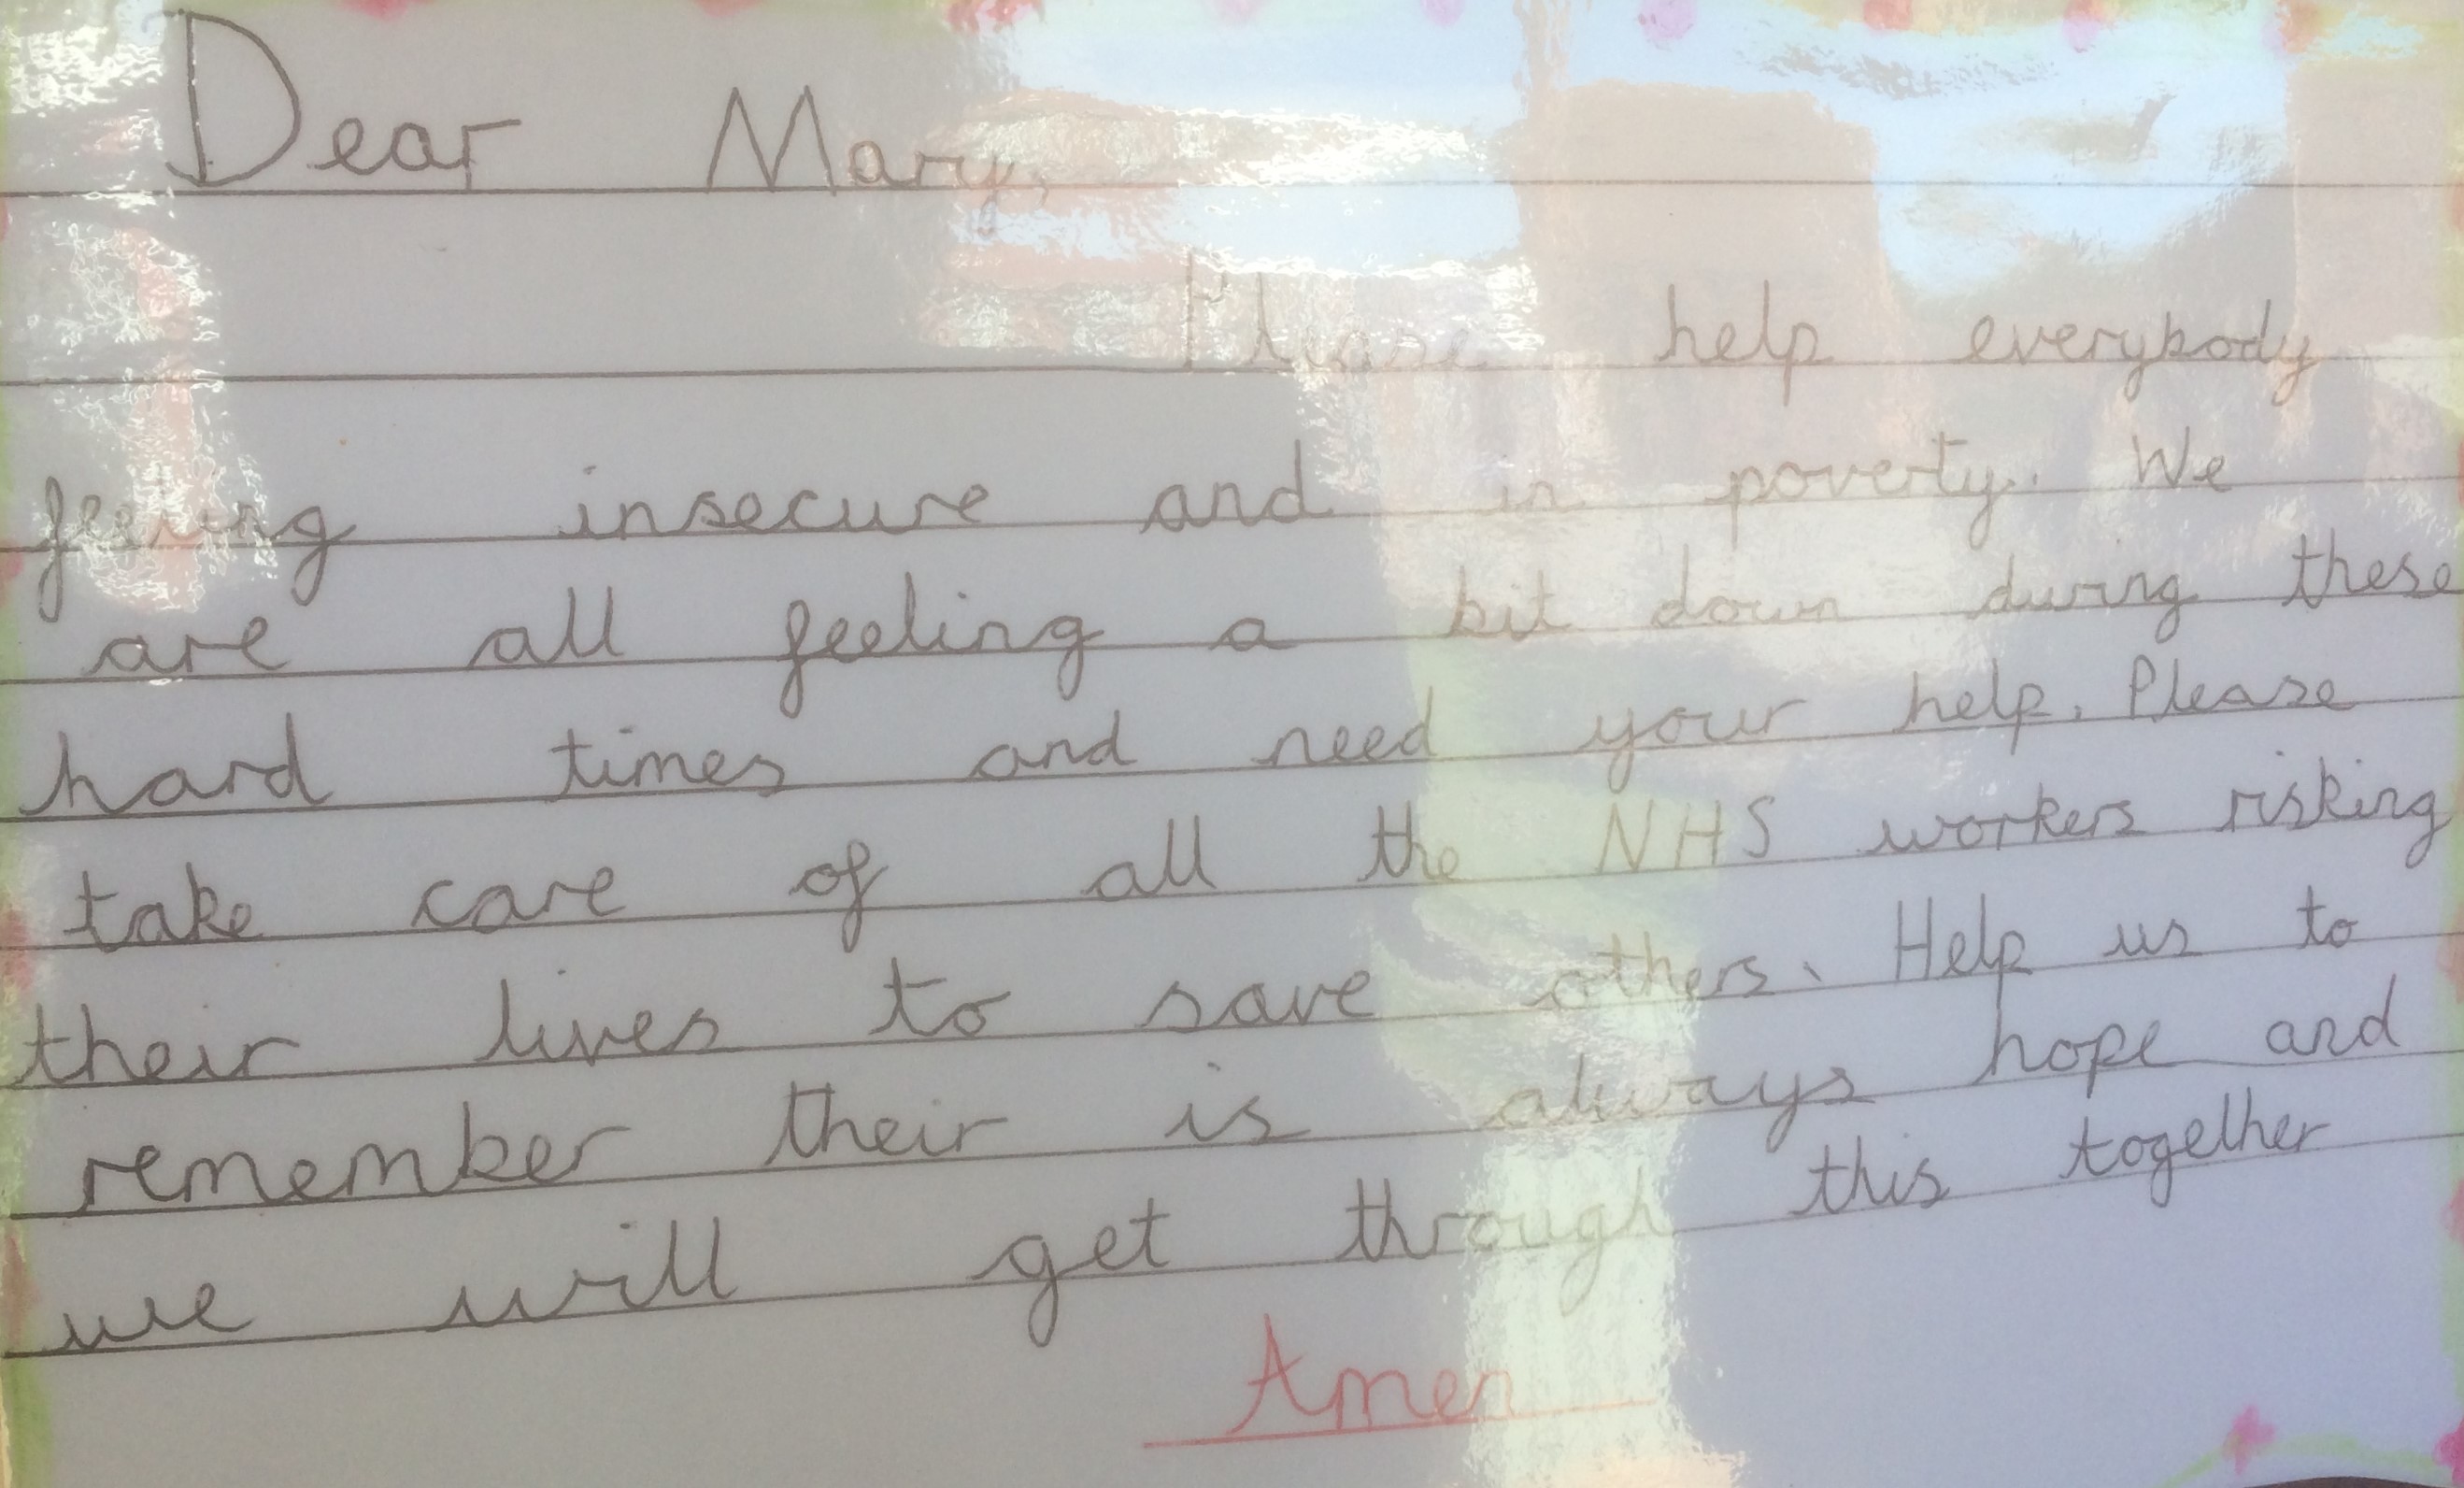 Dear Mary,
Please help everybody
feeling insecure and in poverty. We
are all feeling a bit down during these
hard times and need your help. Please
take care of all the NHS workers risking
their lives to save others. Help us to
remember their is always hope and
we will get through this together
Amen